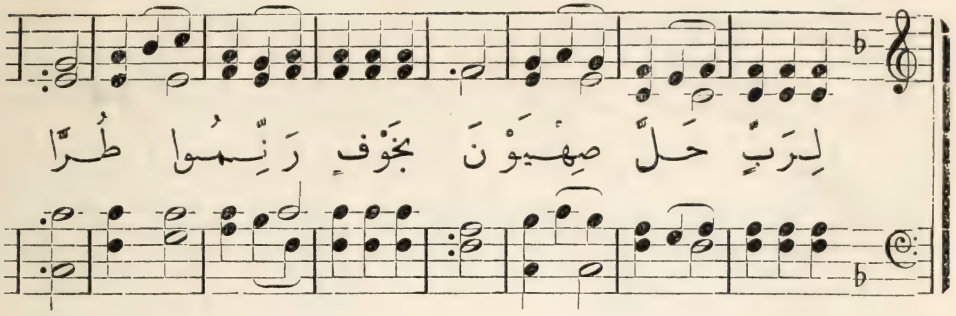 لِرَبٍّ حَلَّ صِهْيَوْنَ بِخَوْفٍ رَنِّمُوا طُرًّا